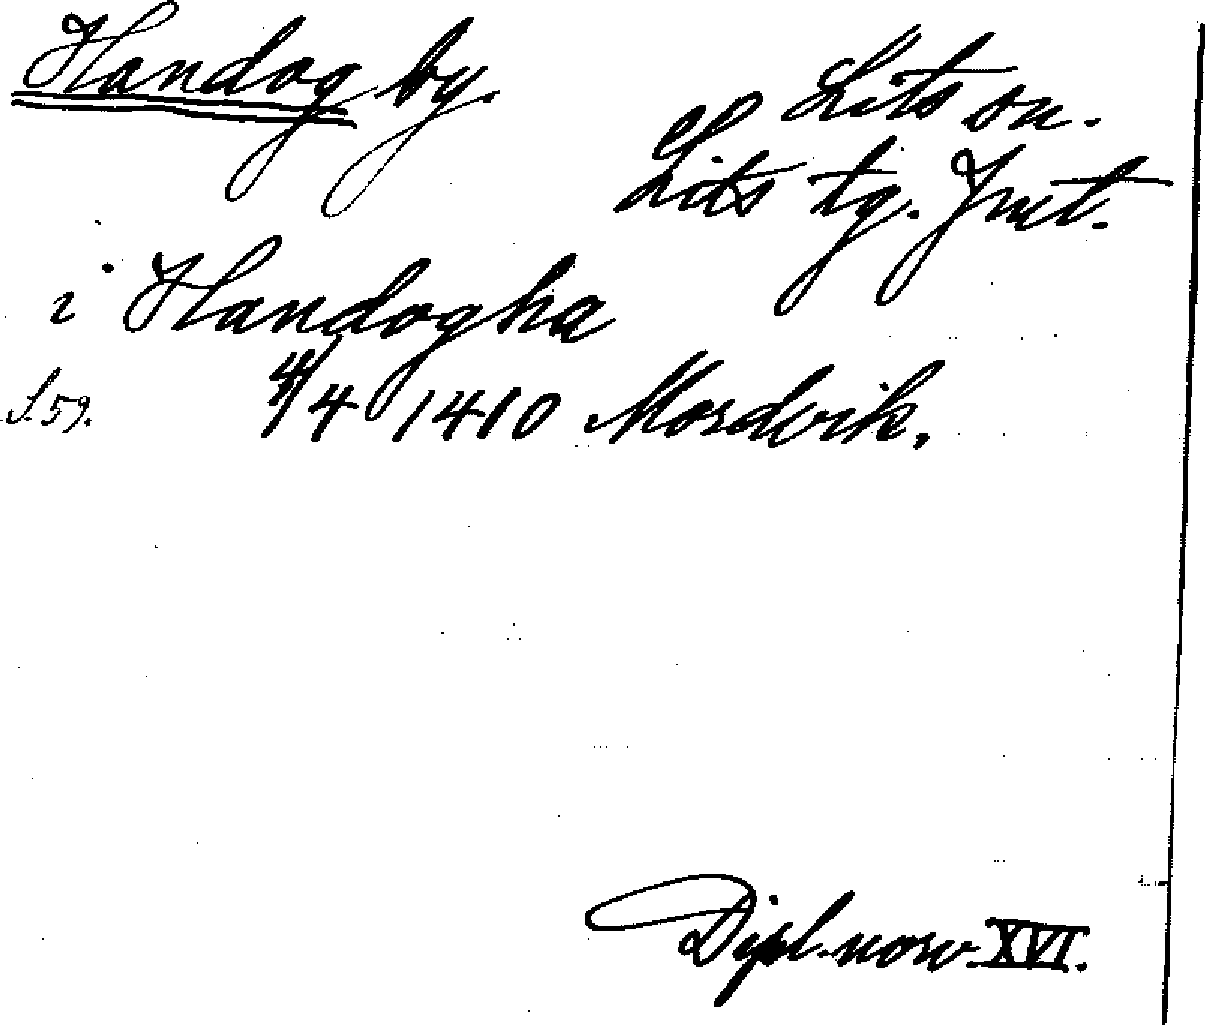 Handog by. Lits sn.
Lits tg. Jmt.
i Handogha
S. 59. 4/4 1410 Mordvik.
Dipl. norv. XVI.